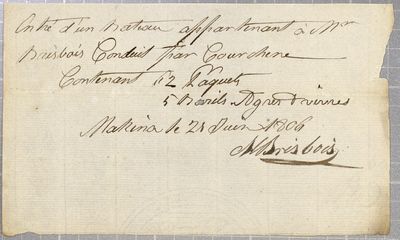 Entré d'un Bateau appartenant à Mr
Brisbois Conduit par Courchene
Contenant 62 Paquets
5 Barils Agrès & vivres
Makina le 21 Juin 1806
MBrisbois